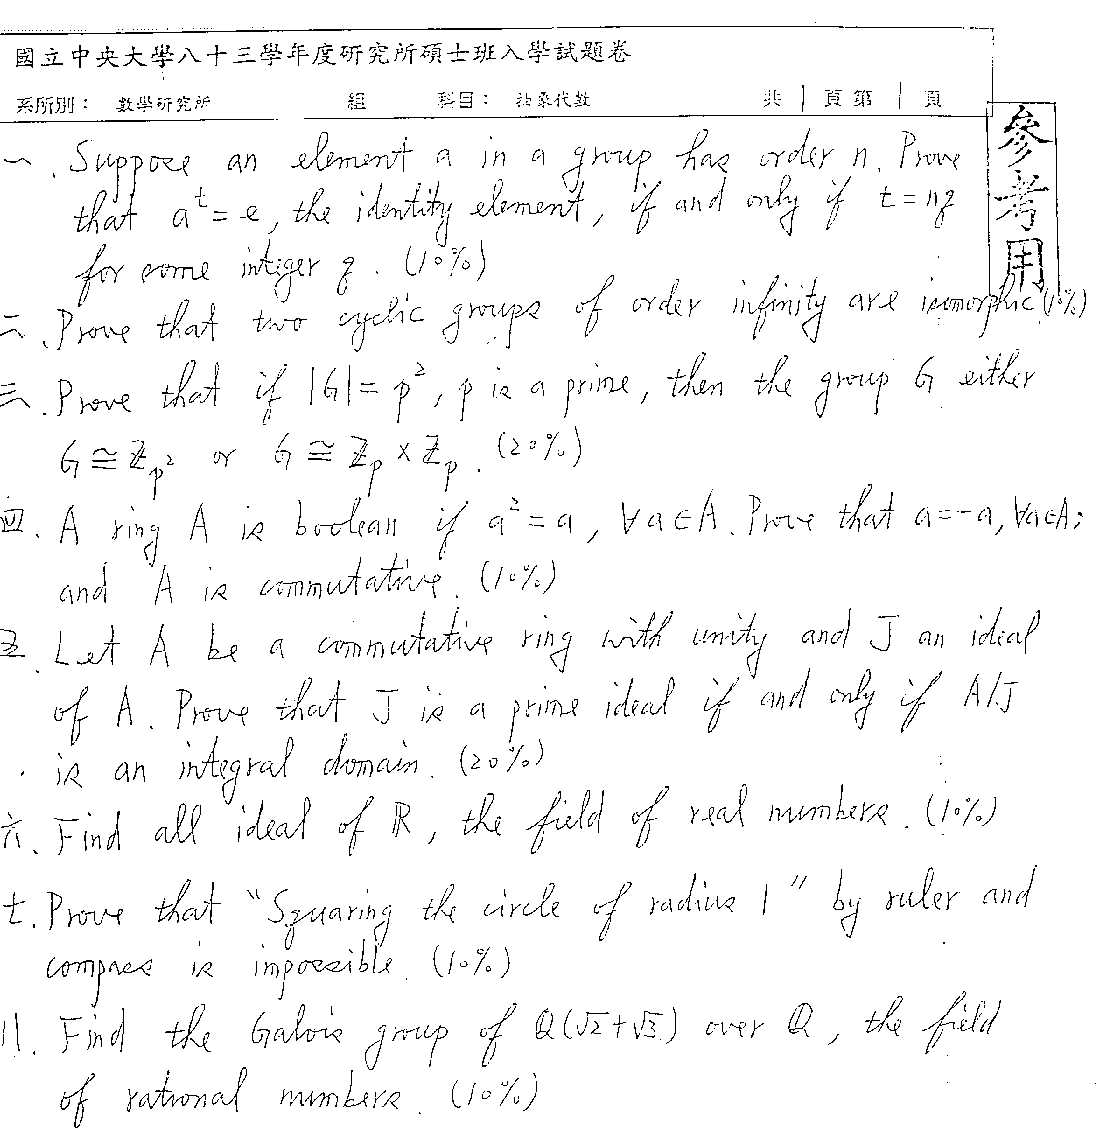 國立中央大學八十三學年度研究所碩士班入學試題卷
系所別： 數學研究所 組 科目： 抽象代數 共 1 頁 第 1 頁
參考用
一. Suppose an element a in a group has order n. Prove
that a^t = e, the identity element, if and only if t = nq
for some integer q. (10%)
二. Prove that two cyclic groups of order infinity are isomorphic (10%)
三. Prove that if |G| = p², p is a prime, then the group G either
G ≅ ℤ_p² or G ≅ ℤ_p × ℤ_p. (20%)
四. A ring A is boolean if a² = a, ∀a∈A. Prove that a = -a, ∀a∈A;
and A is commutative. (10%)
五. Let A be a commutative ring with unity and J an ideal
of A. Prove that J is a prime ideal if and only if A/J
is an integral domain. (20%)
六. Find all ideal of ℝ, the field of real numbers. (10%)
七. Prove that "Squaring the circle of radius 1" by ruler and
compass is impossible. (10%)
八. Find the Galois group of ℚ(√2+√3) over ℚ, the field
of rational numbers. (10%)